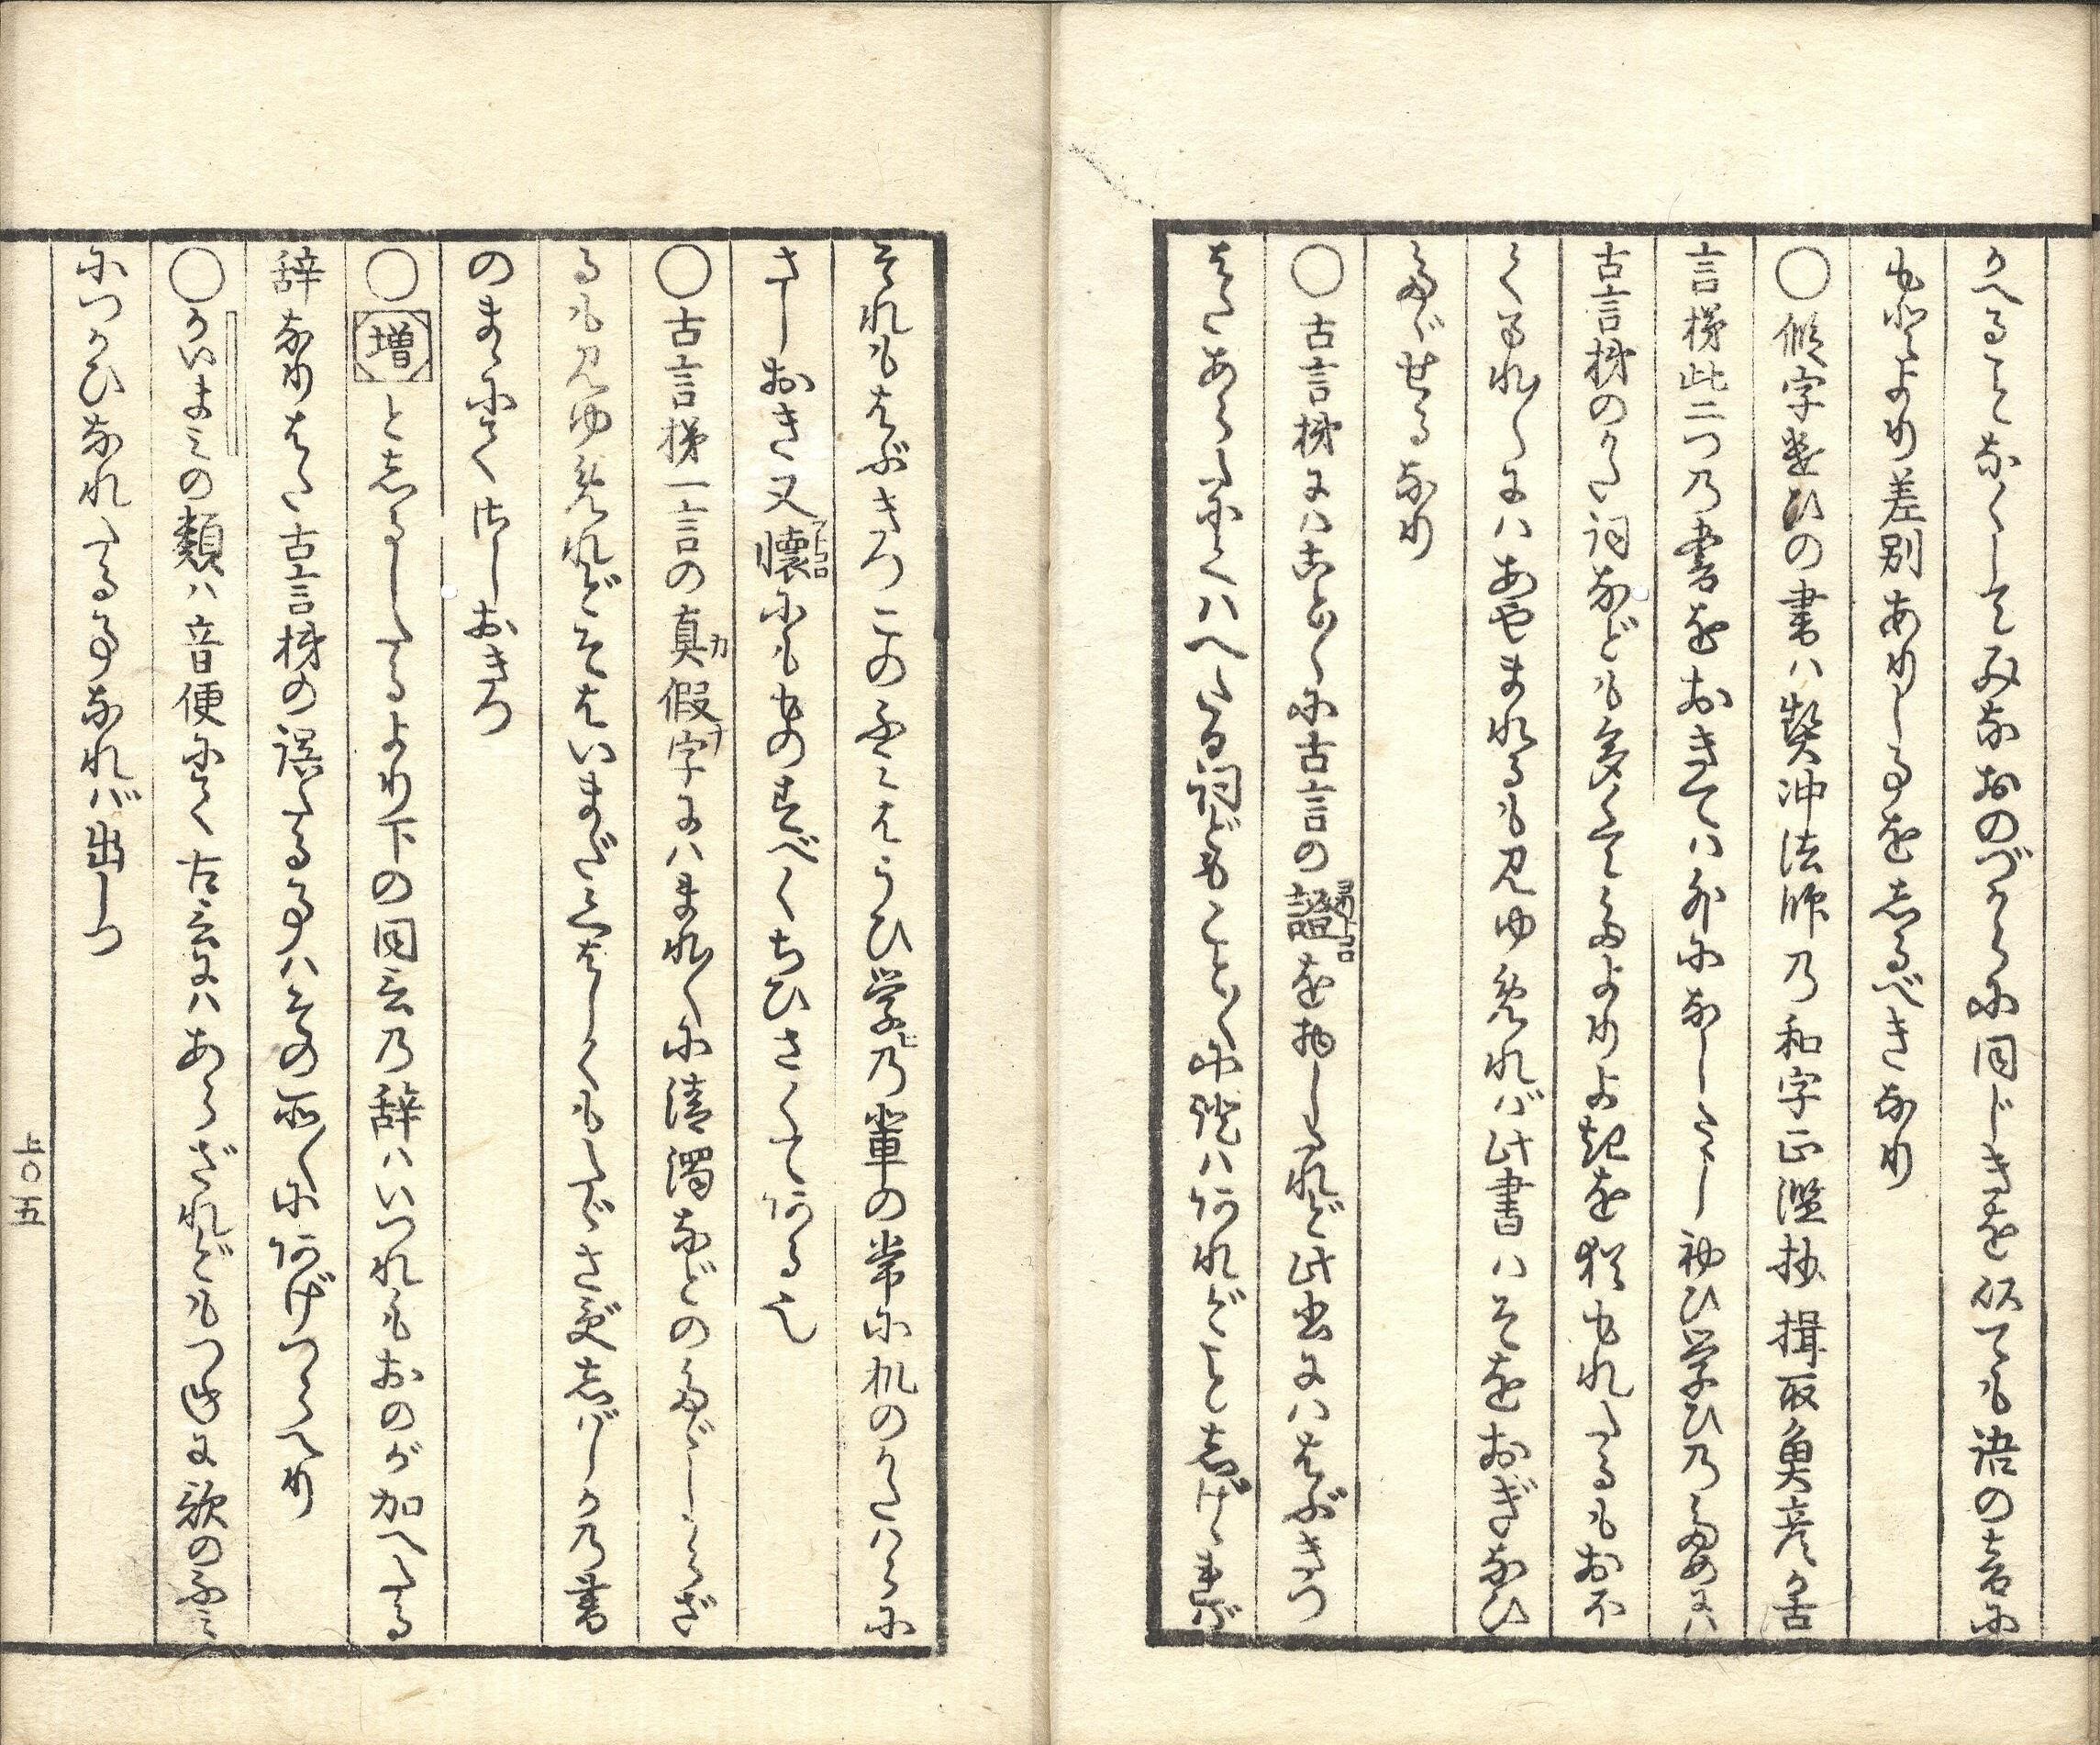 かへることなくしてみなおのづからに同じきを似ても語の音に
もとより差別ありし事を志るべきなり
○假字遣ひの書ハ契冲法師乃和字正濫抄楫取魚彦が古
言梯此二つ乃書をおきてハ外になしさし初ひ学ひ乃為めにハ
古言梯のかた詞なども多くてたよりよきを猶もれたるもおほ
くまれ〳〵にハあやまれるも見ゆめれバ此書ハそをおぎなひ
たゞせるなり
○古言梯にハこと〴〵に古言の證を抄したれど此書にハはぶきつ
はたあらたにくハへたる詞どもこと〴〵に證ハあれどこと志げゝれバ
それもはぶきつこのふみはうひ学び乃輩の常に机のかたハらに
さしおき又懐にももの春べくちひさくてあるべし
○古言梯一言の真假字にハまれ〳〵に清濁などのたゞしからざ
るも見ゆめれどそはいまださだかならくもたゞさず志ばしか乃書
のまゝにて出しおきつ
○増と志るしたるより下の同言乃辞ハいづれもおのが加へたる
辞なりはた古言梯の誤たる事ハその所〳〵にあげつらへり
○かいまミの類ハ音便にて古言にハあらざれどもつねに歌のふミ
につかひなれたる事なれバ出しつ
上○五